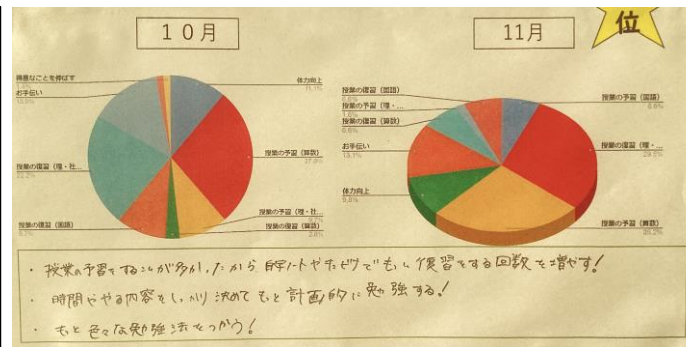 10月
11月
位
得意なことを伸ばす
お手伝い
体力向上
11.1%
授業の予習 (算数)
授業の復習 (理・社...
22.2%
授業の予習 (理・社...
授業の復習 (算数)
授業の復習 (国語)
授業の復習 (国語)
6.6%
授業の予習 (理・...
1.6%
授業の復習 (算数)
6.6%
お手伝い
13.1%
体力向上
9.8%
授業の予習 (国語)
6.6%
授業の復習 (理・...
29.5%
授業の予習 (算数)
26.2%
・授業の予習をすることが多かったから 自学ノートや でもっと復習をする回数を増やす!
・時間ややる内容をしっかり決めてもっと計画的に勉強する!
・もっと色々な勉強法をつかう!